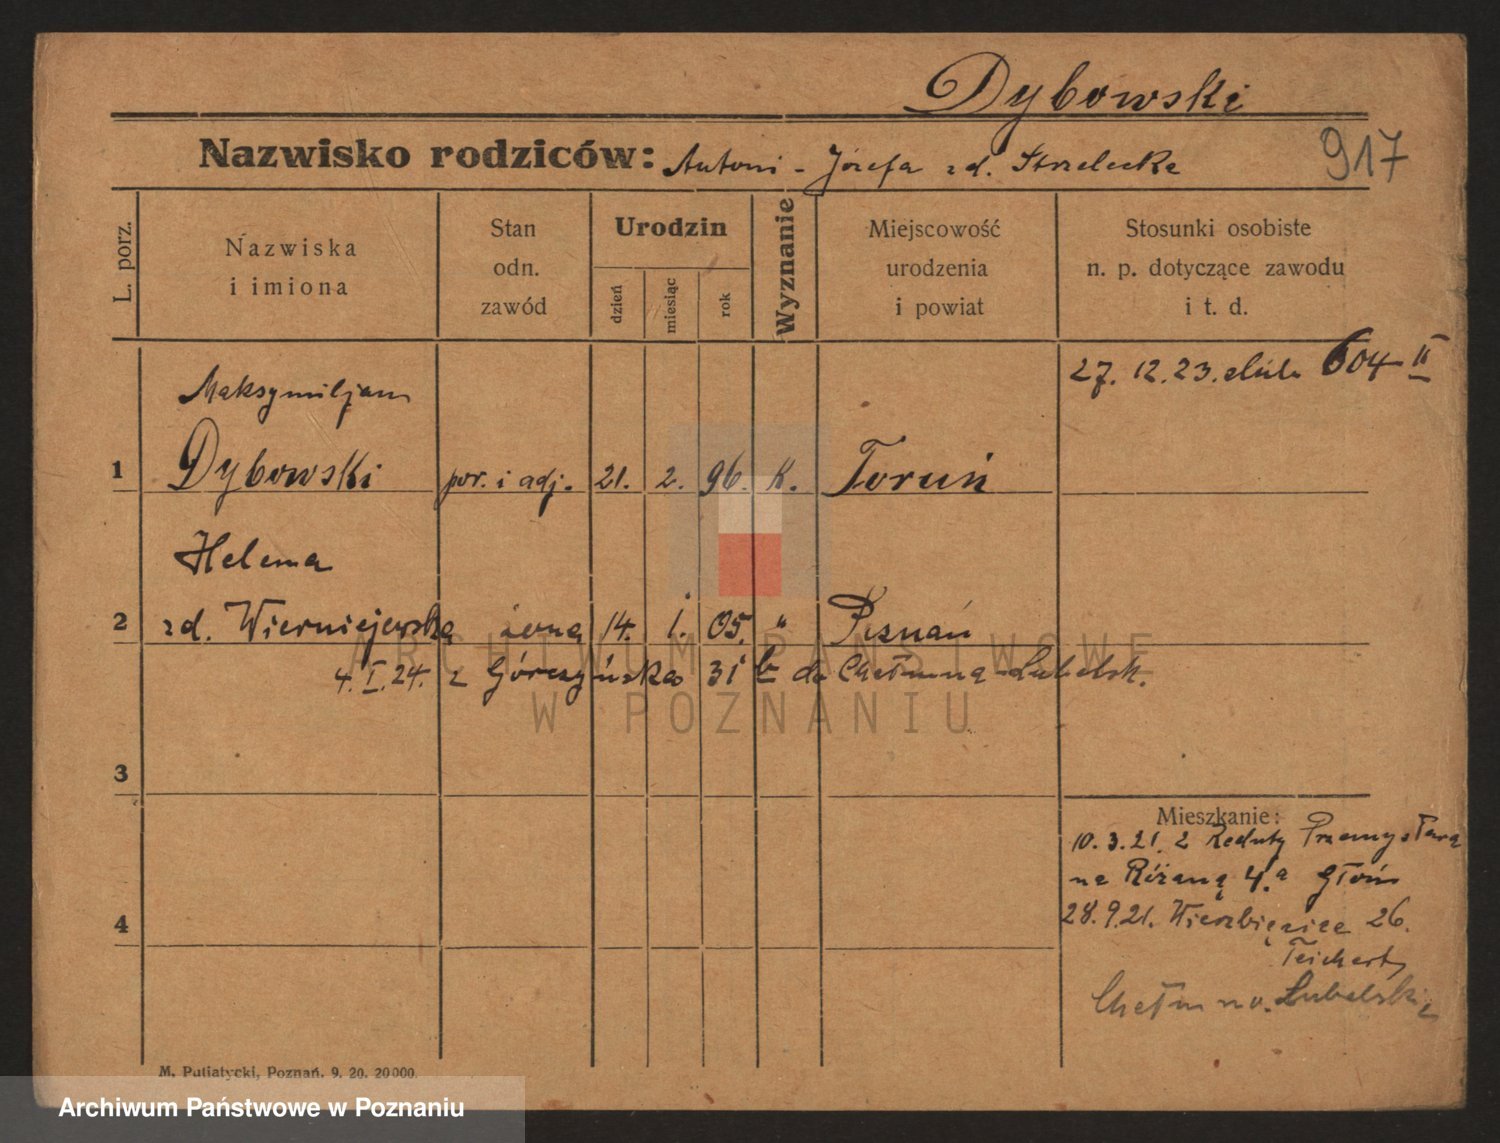 Dybowski
Nazwisko rodziców: Antoni - Józefa zd. Strzelecka
917
L. porz.
Nazwiska
i imiona
Stan
odn.
zawód
Urodzin
dzień
miesiąc
rok
Wyznanie
Miejscowość
urodzenia
i powiat
Stosunki osobiste
n. p. dotyczące zawodu
i t. d.
27. 12. 23. 604 II
Maksymiljan
1 Dybowski por. i adj. 21. 2. 96. k. Toruń
Helena
2 zd. Wierniejewska żona 14. 1. 05. " Poznań
4. I. 24. z Górczyńska 31 b do Chełmna-Lubelsk.
ARCHIWUM PAŃSTWOWE
W POZNANIU
3
Mieszkanie:
10. 3. 21. z Reduty Przemysława
na Różaną 4.a
28. 9. 21. Wierzbięcice 26.
4
Teichert
Chełm wo. Lubelskie
M. Putiatycki, Poznań. 9. 20. 20000.
Archiwum Państwowe w Poznaniu